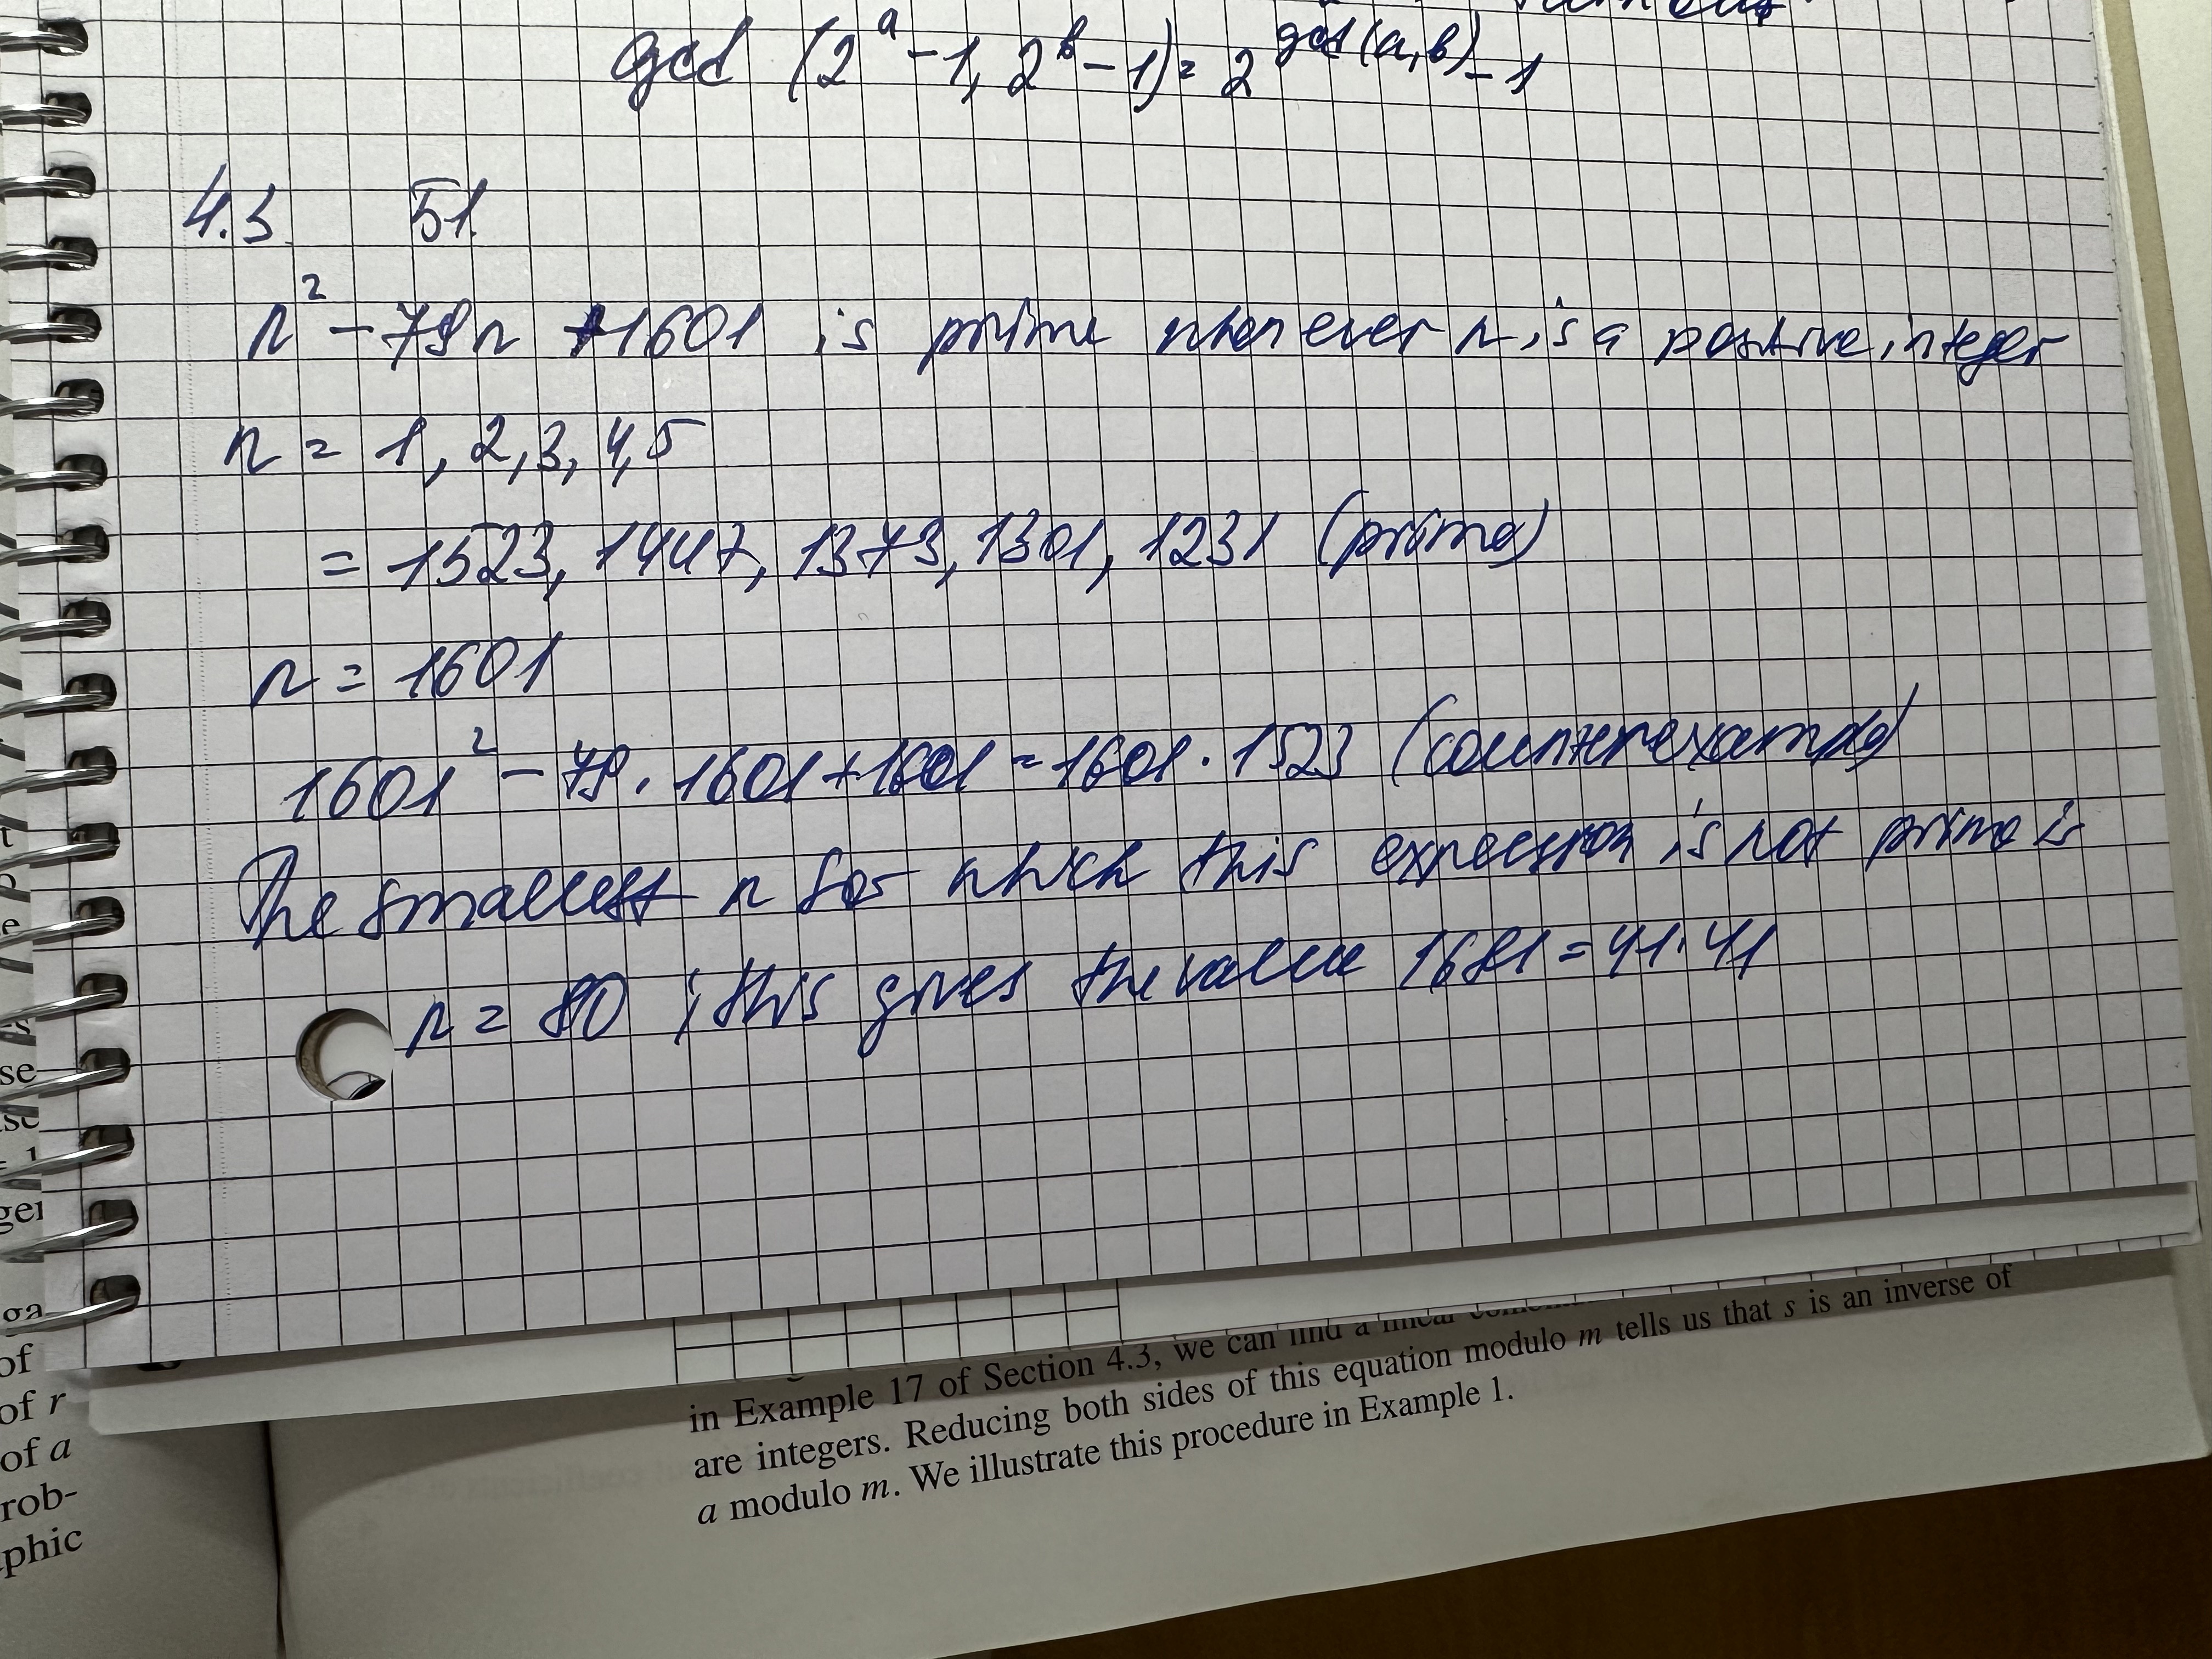 gcd (2^a - 1, 2^b - 1) = 2^gcd(a,b) - 1
4.3 51
n² - 79n + 1601 is prime whenever n is a positive integer
n = 1, 2, 3, 4, 5
= 1523, 1447, 1373, 1301, 1231 (prime)
n = 1601
1601² - 79 · 1601 + 1601 = 1601 · 1523 (counterexample)
The smallest n for which this expression is not prime is
n = 80; this gives the value 1681 = 41·41
in Example 17 of Section 4.3, we can find a linear
are integers. Reducing both sides of this equation modulo m tells us that s is an inverse of
a modulo m. We illustrate this procedure in Example 1.
of r
of a
rob-
phic